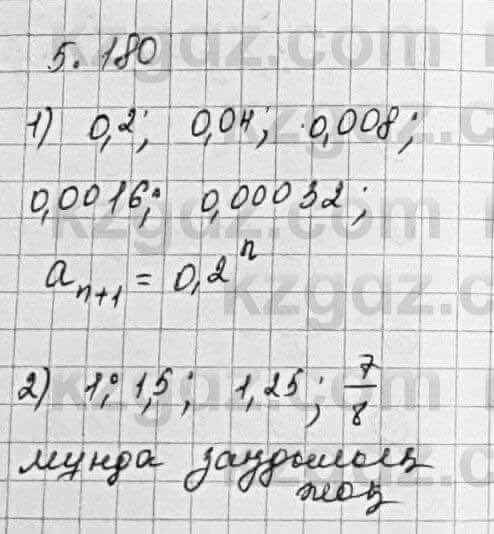 5.180
1) 0,2; 0,04; 0,008;
0,0016; 0,00032;
a_{n+1} = 0,2^n
2) 1; 1,5; 1,25; 7/8
мунда заңдылық
жоқ